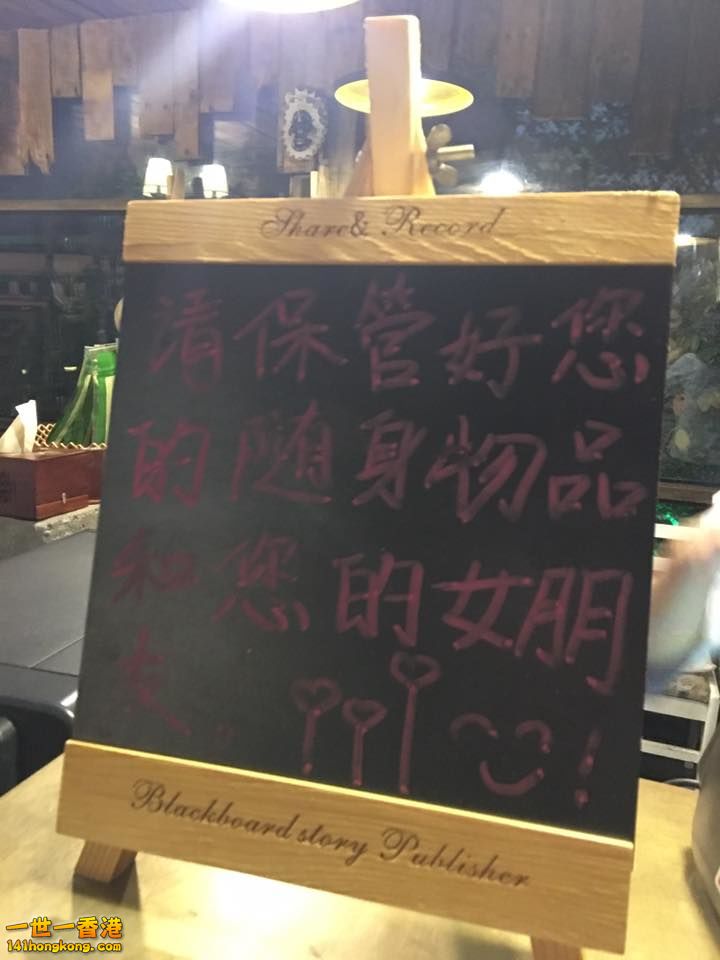 Share& Record
请保管好您
的随身物品
和您的女朋
友。!
Blackboard story Publisher
一世一香港
141hongkong.com